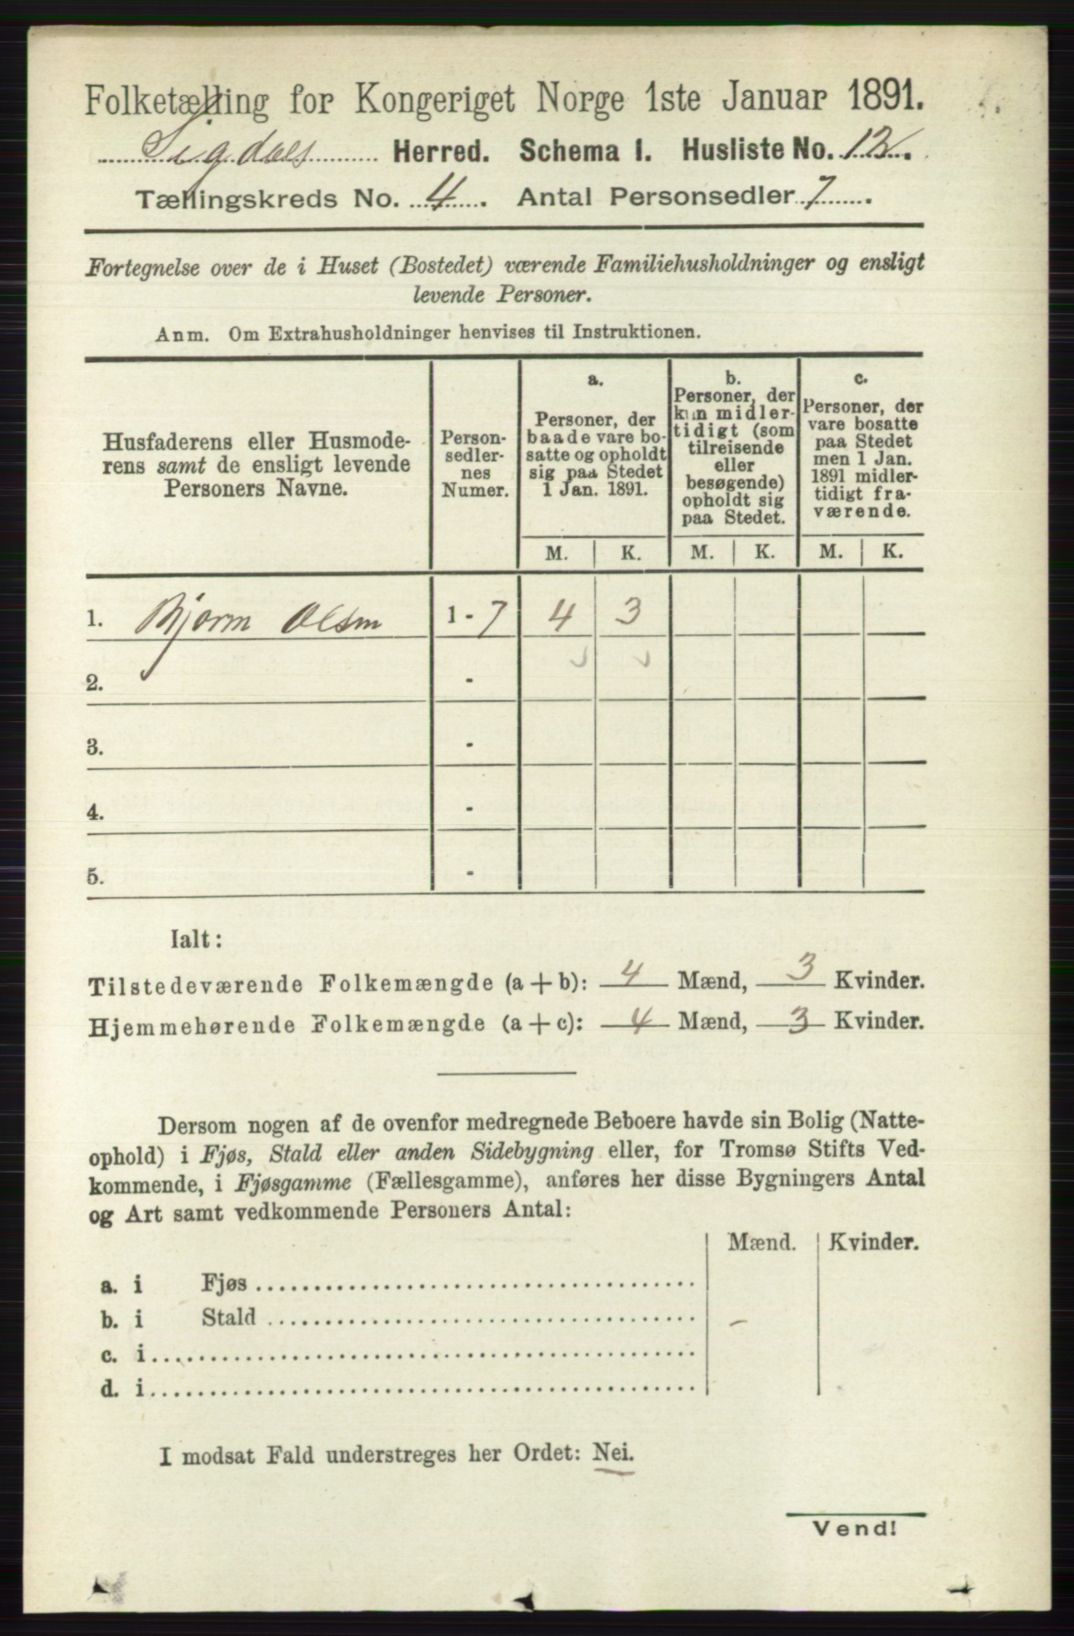 Folketælling for Kongeriget Norge 1ste Januar 1891.
Sigdals Herred. Schema I. Husliste No. 12.
Tællingskreds No. 4. Antal Personsedler 7.
Fortegnelse over de i Huset (Bostedet) værende Familiehusholdninger og ensligt
levende Personer.
Anm. Om Extrahusholdninger henvises til Instruktionen.
Husfaderens eller Husmode-
rens samt de ensligt levende
Personers Navne.
Person-
sedler-
nes
Numer.
a.
Personer, der
baade vare bo-
satte og opholdt
sig paa Stedet
1 Jan. 1891.
b.
Personer, der
kun midler-
tidigt (som
tilreisende
eller
besøgende)
opholdt sig
paa Stedet.
c.
Personer, der
vare bosatte
paa Stedet
men 1 Jan.
1891 midler-
tidigt fra-
værende.
M. K. M. K. M. K.
1. Bjørn Olsen 1 - 7 4 3
2. -
3. -
4. -
5. -
Ialt:
Tilstedeværende Folkemængde (a + b): 4 Mænd, 3 Kvinder.
Hjemmehørende Folkemængde (a + c): 4 Mænd, 3 Kvinder.
Dersom nogen af de ovenfor medregnede Beboere havde sin Bolig (Natte-
ophold) i Fjøs, Stald eller anden Sidebygning eller, for Tromsø Stifts Ved-
kommende, i Fjøsgamme (Fællesgamme), anføres her disse Bygningers Antal
og Art samt vedkommende Personers Antal:
Mænd. Kvinder.
a. i Fjøs
b. i Stald -
c. i
d. i
I modsat Fald understreges her Ordet: Nei.
Vend!